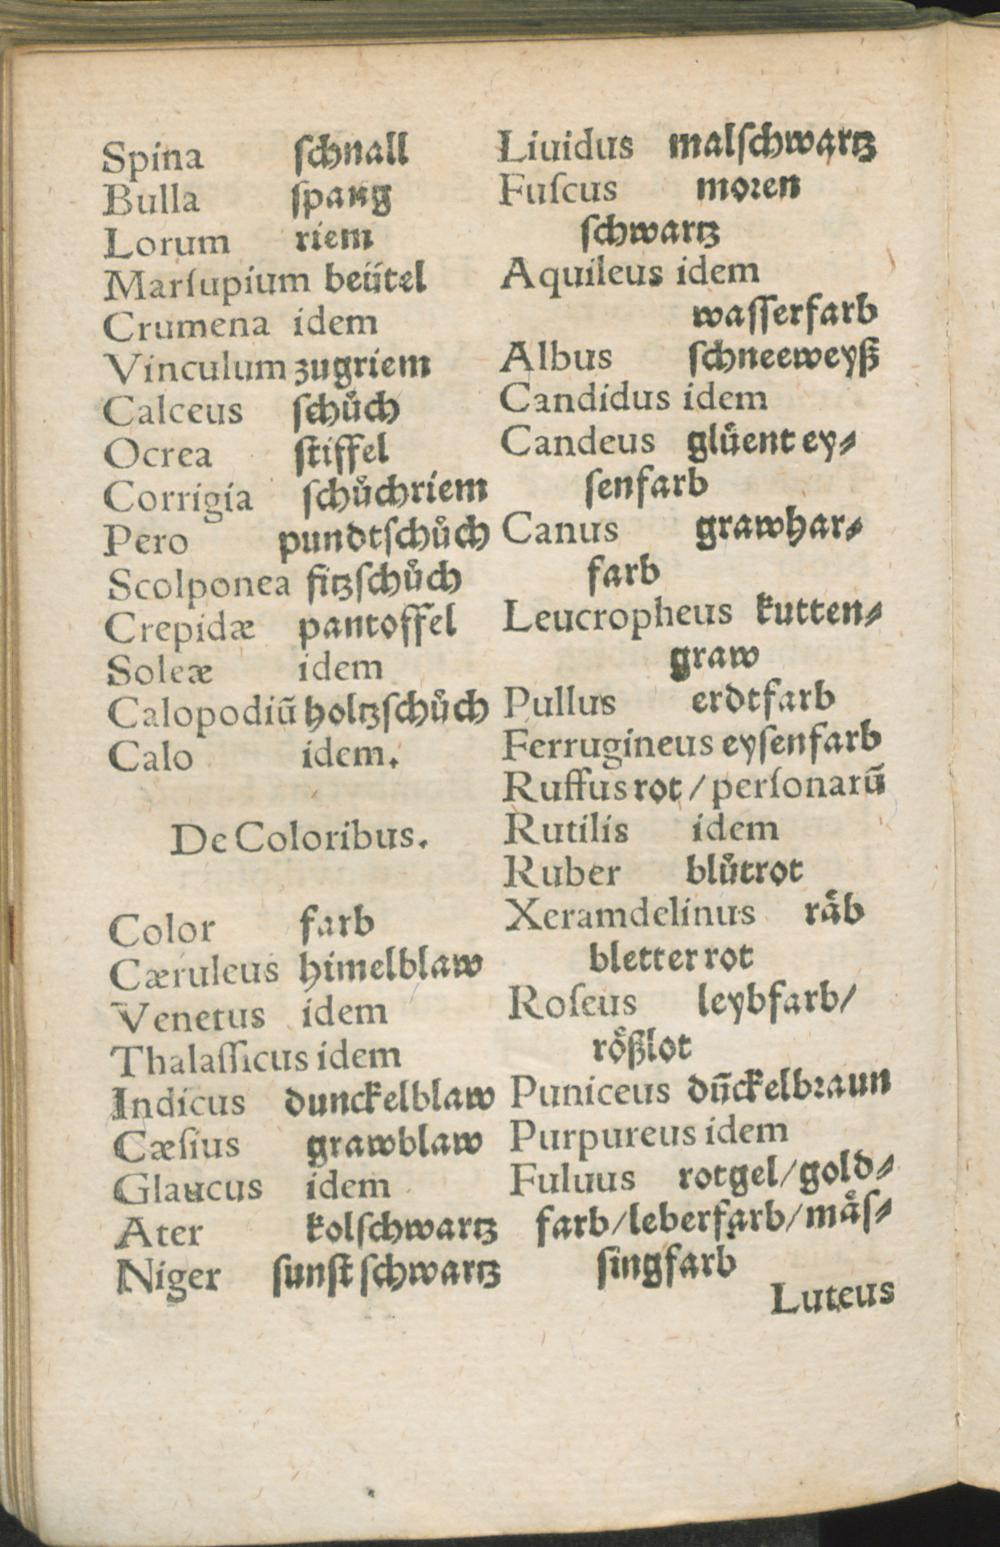 Spina ſchnall
Bulla ſpang
Lorum riem
Marſupium beütel
Crumena idem
Vinculum zugriem
Calceus ſchuͦch
Ocrea ſtiffel
Corrigia ſchuͦchriem
Pero pundtſchuͦch
Scolponea fitzſchuͦch
Crepidæ pantoffel
Soleæ idem
Calopodiũ holtzſchuͦch
Calo idem.
De Coloribus.
Color farb
Cæruleus himelblaw
Venetus idem
Thalaſſicus idem
Indicus dunckelblaw
Cæſius grawblaw
Glaucus idem
Ater kolſchwartz
Niger ſunſt ſchwartz
Liuidus malſchwartz
Fuſcus moꝛen
ſchwartz
Aquileus idem
waſſerfarb
Albus ſchneeweyß
Candidus idem
Candeus gluͤent ey⸗
ſenfarb
Canus grawhar⸗
farb
Leucropheus kutten⸗
graw
Pullus erdtfarb
Ferrugineus eyſenfarb
Ruffus rot / perſonarũ
Rutilis idem
Ruber bluͦtrot
Xeramdelinus raͤb
bletter rot
Roſeus leybfarb/
roͤßlot
Puniceus dũckelbꝛaun
Purpureus idem
Fuluus rotgel/gold⸗
farb/leberfarb/maͤſ⸗
ſingfarb
Luteus